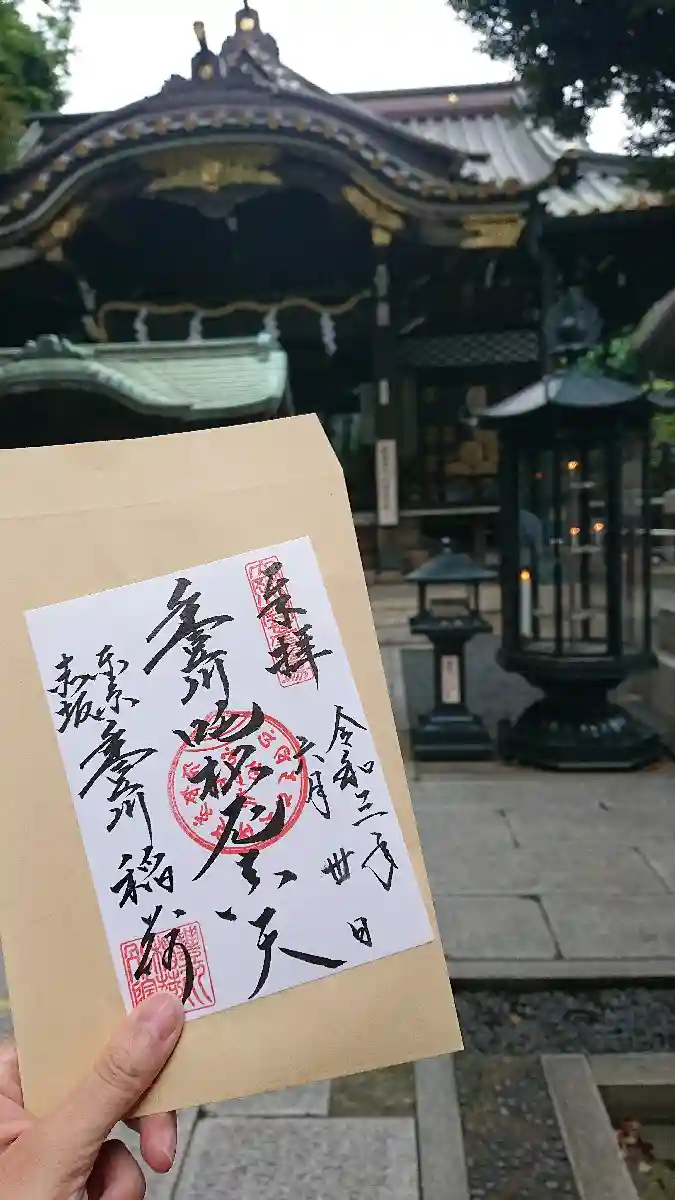 奉拝
令和三年
六月
卅日
豊川吒枳尼真天
東京
赤坂
豊川稲荷